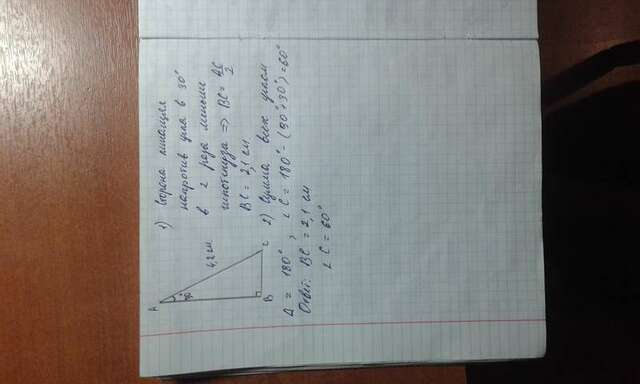 A
30°
4,2 см
B
C
1) Сторона лежащая
напротив угла в 30°
в 2 раза меньше
гипотенузы => BC = AC/2
BC = 2,1 см
2) Сумма всех углов
Δ = 180°, ∠C = 180° - (90° + 30°) = 60°
Ответ: BC = 2,1 см
∠C = 60°